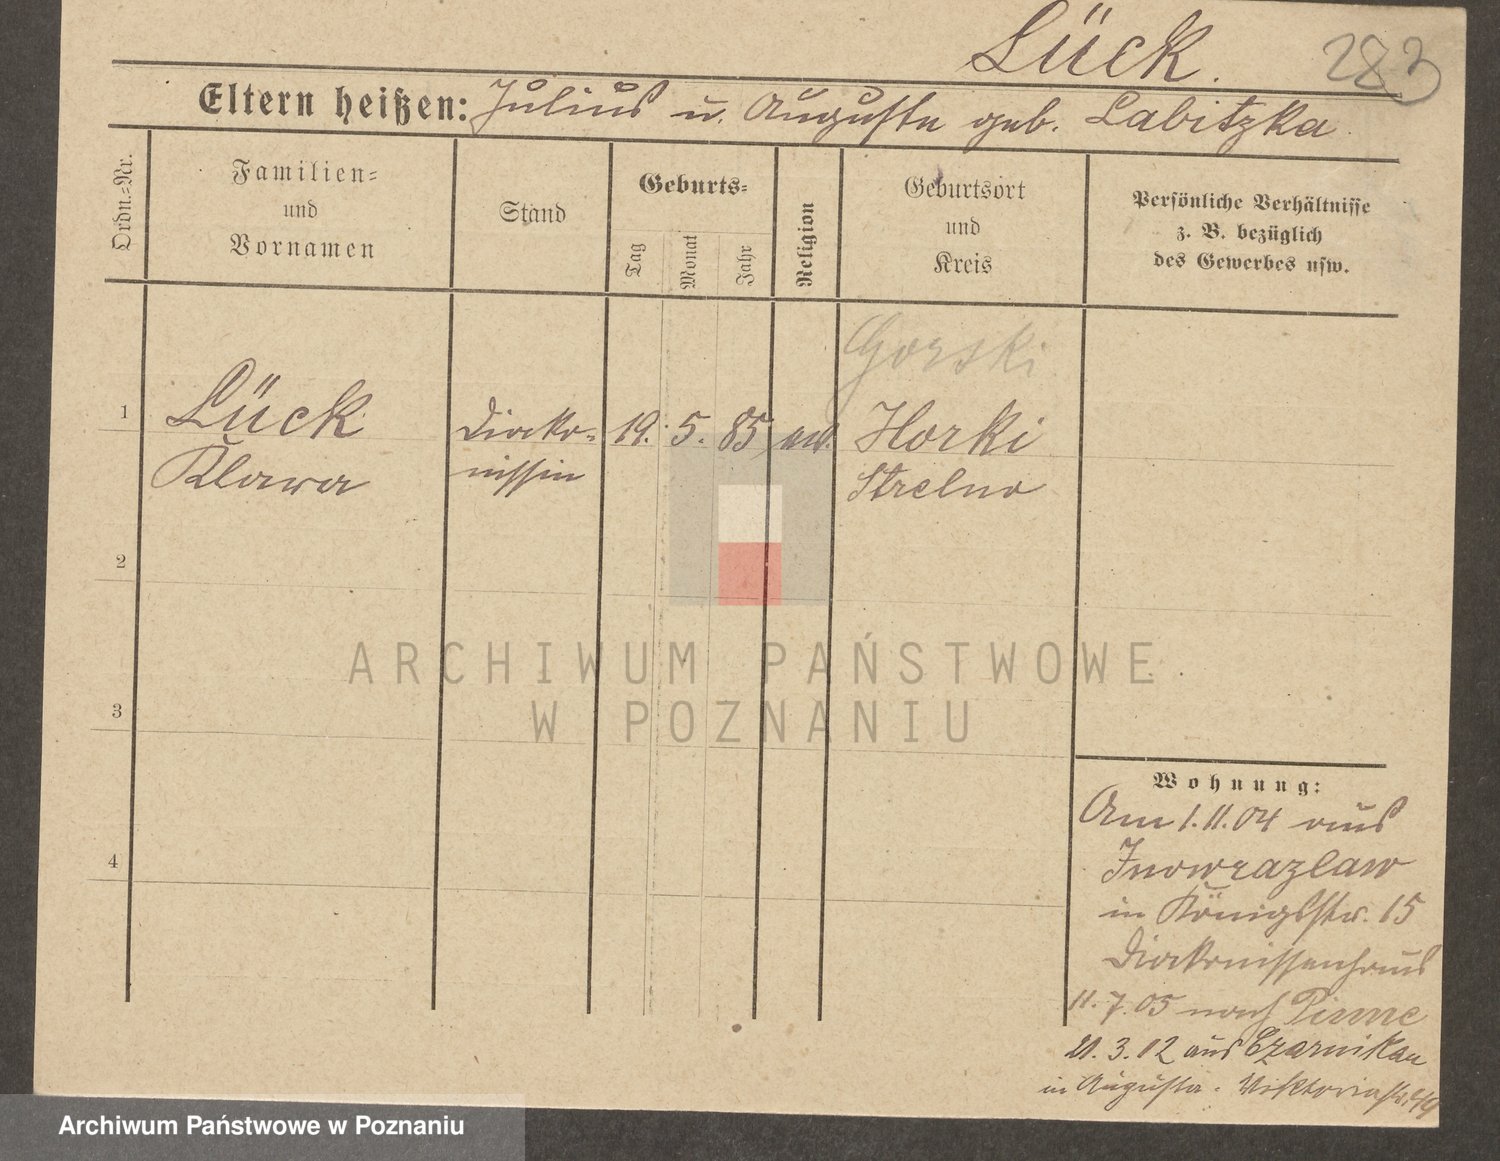 Lück.
283
Eltern heißen: Julius u. Auguste geb. Labitzka.
Ordn.=Nr.
Familien=
und
Vornamen
Stand
Geburts=
Tag
Monat
Jahr
Religion
Geburtsort
und
Kreis
Persönliche Verhältnisse
z. B. bezüglich
des Gewerbes usw.
Gorski
1
Lück
Klara
Diako=
nissin
19. 5. 85
ev.
Horki
Strelno
2
3
4
ARCHIWUM PAŃSTWOWE
W POZNANIU
Wohnung:
Am 1.11.04 aus
Inowrazlaw
in Königsstr. 15
Diakonissenhaus
11.7.05 nach Pinne
21.3.12 aus Czarnikau
in Augusta-Viktoriastr. 49
Archiwum Państwowe w Poznaniu